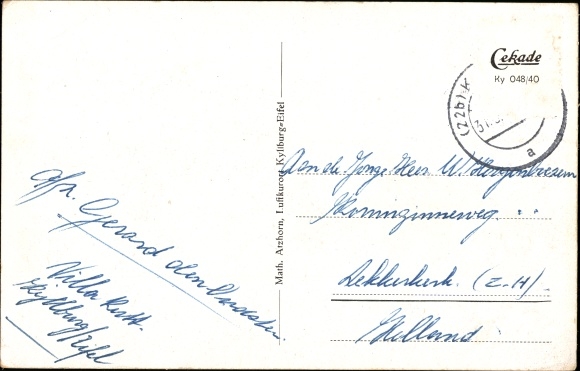 Cekade
Ky 048/40
(22b) K
31.
a
Math. Atzhorn, Luftkurort Kyllburg=Eifel
Aan de Jonge Heer W.
Koninginneweg
Lekkerkerk. (Z-H)
Holland
Afz. Gerard den
Villa
Kyllburg/Eifel